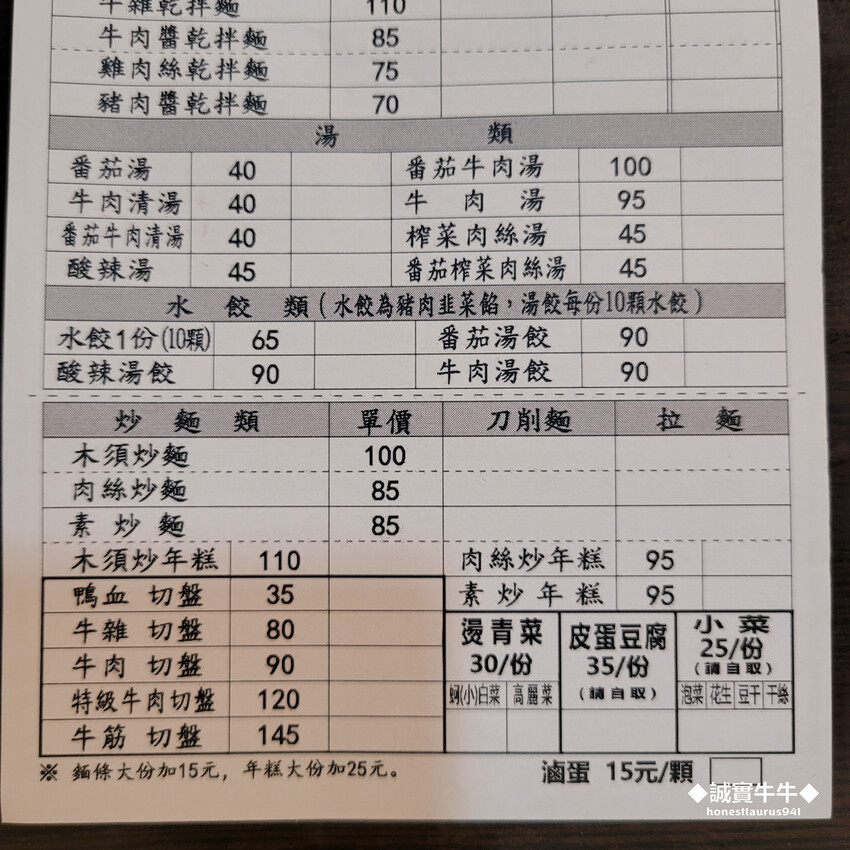 牛雜乾拌麵 110
牛肉醬乾拌麵 85
雞肉絲乾拌麵 75
豬肉醬乾拌麵 70
湯 類
番茄湯 40 番茄牛肉湯 100
牛肉清湯 40 牛肉湯 95
番茄牛肉清湯 40 榨菜肉絲湯 45
酸辣湯 45 番茄榨菜肉絲湯 45
水餃類(水餃為豬肉韭菜餡，湯餃每份10顆水餃)
水餃1份(10顆) 65 番茄湯餃 90
酸辣湯餃 90 牛肉湯餃 90
炒麵類 單價 刀削麵 拉麵
木須炒麵 100
肉絲炒麵 85
素炒麵 85
木須炒年糕 110 肉絲炒年糕 95
鴨血 切盤 35 素炒年糕 95
牛雜 切盤 80
牛肉 切盤 90
特級牛肉切盤 120
牛筋 切盤 145
燙青菜
30/份
(小)白菜 高麗菜
皮蛋豆腐
35/份
(請自取)
小菜
25/份
(請自取)
泡菜 花生 豆干 干絲
※ 麵條大份加15元，年糕大份加25元。
滷蛋 15元/顆
◆誠實牛牛◆
honesttaurus941